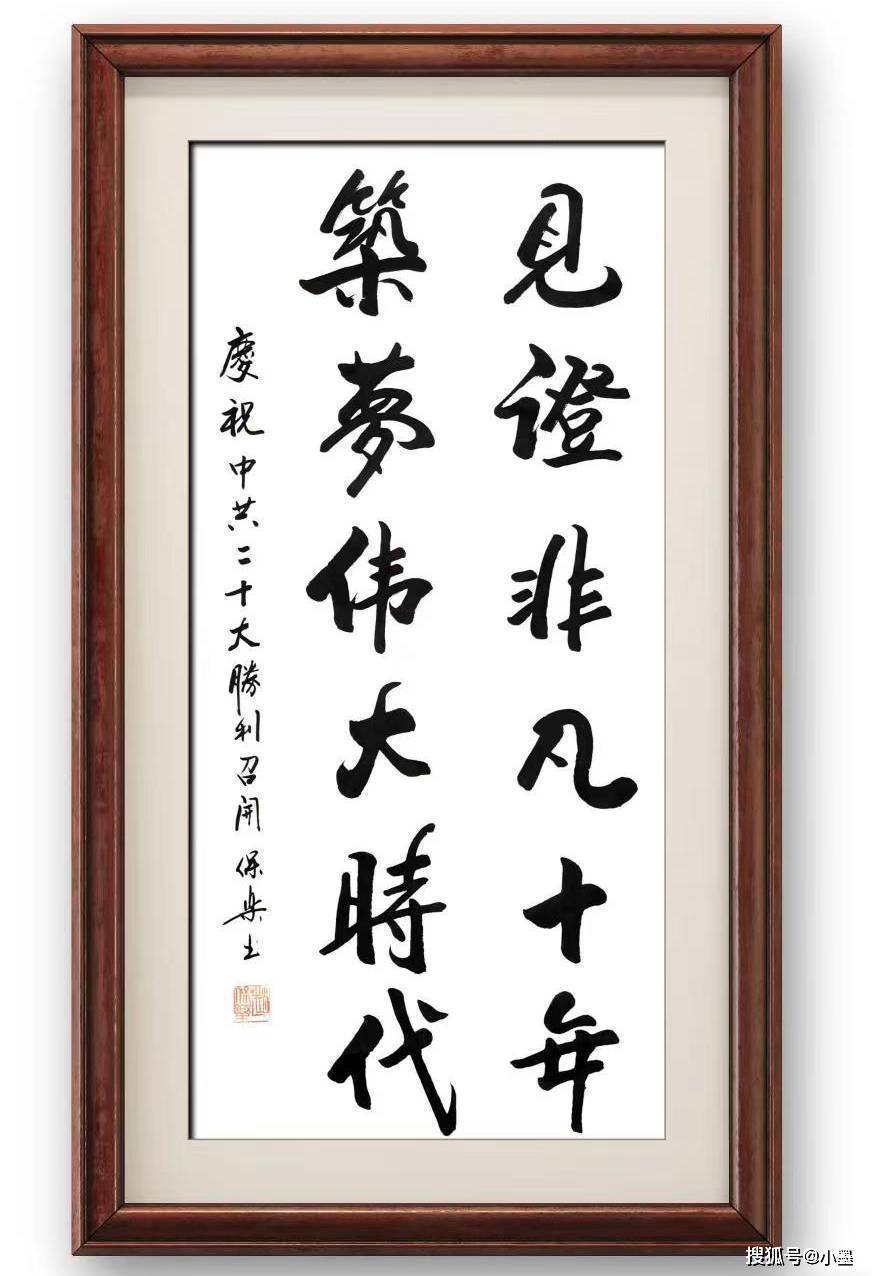 見證非凡十年
築夢伟大時代
慶祝中共二十大勝利召開 保樂书
搜狐号@小墨